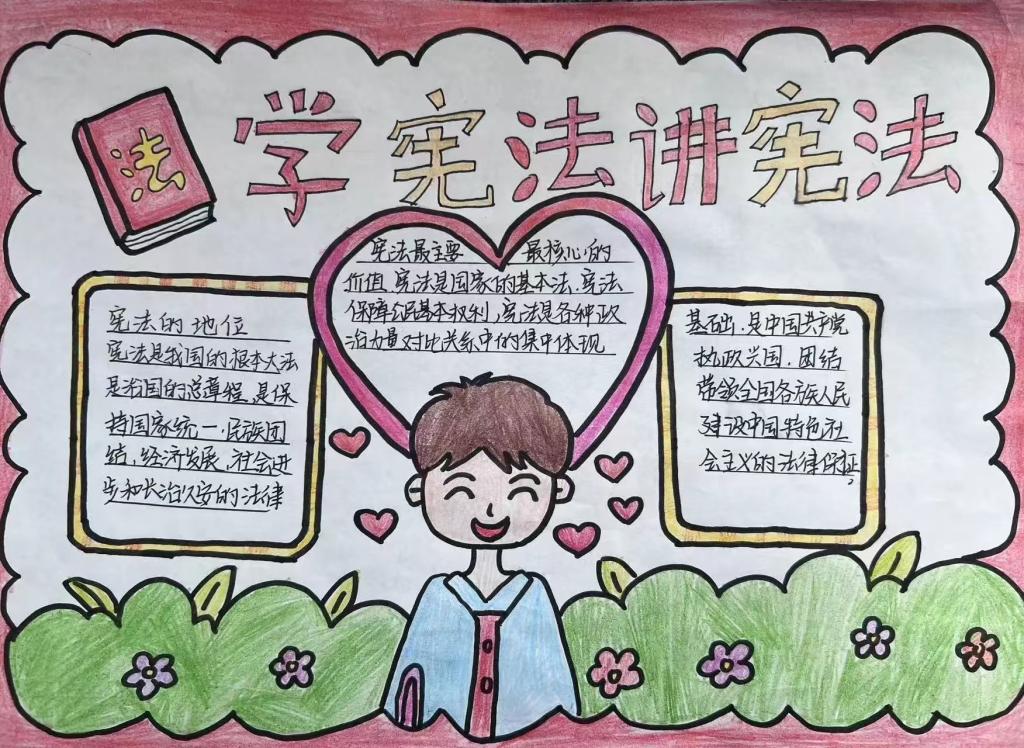 法
学宪法讲宪法
宪法最主要 最核心的
价值,宪法是国家的基本法,宪法
保障公民基本权利,宪法是各种政
治力量对比关系中的集中体现
宪法的地位
宪法是我国的根本大法
是治国的总章程,是保
持国家统一.民族团
结,经济发展,社会进
步和长治久安的法律
基础.是中国共产党
执政兴国.团结
带领全国各族人民
建设中国特色社
会主义的法律保证,